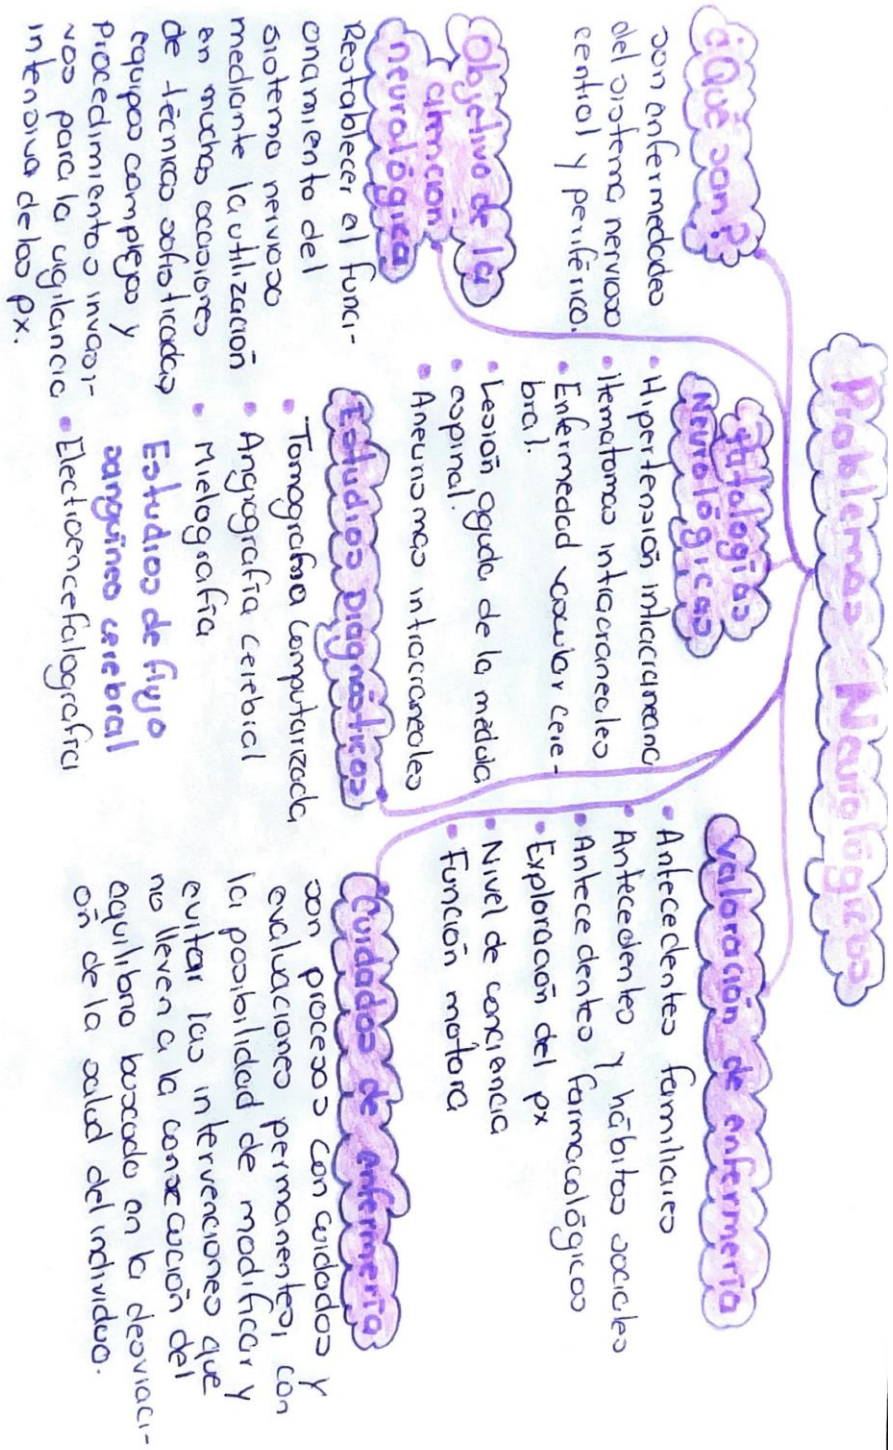 Problemas Neurológicos
¿Qué son?
son enfermedades
del sistema nervioso
central y periférico.
Objetivo de la
atención
neurológica
Restablecer al funci-
onamiento del
sistema nervioso
mediante la utilización
en muchas ocasiones
de técnicas sofisticadas
equipos complejos y
Procedimientos invasi-
vos para la vigilancia
intensiva de los px.
Patologías
Neurológicas
• Hipertensión intracraneana
• Hematomas intracraneales
• Enfermedad vascular cere-
bral.
• Lesión aguda de la médula
• espinal.
• Aneurismas intracraneales
Estudios Diagnósticos
• Tomografía computarizada
• Angiografía cerebral
• Mielografía
Estudios de flujo
sanguíneo cerebral
• Electroencefalografía
Valoración de enfermería
• Antecedentes familiares
• Antecedentes y hábitos sociales
• Antecedentes farmacológicos
• Exploración del px
• Nivel de conciencia
• Función motora
Cuidados de enfermería
son procesos con cuidados y
evaluaciones permanentes, con
la posibilidad de modificar y
evitar las intervenciones que
no lleven a la consecución del
equilibrio buscado en la desviaci-
ón de la salud del individuo.